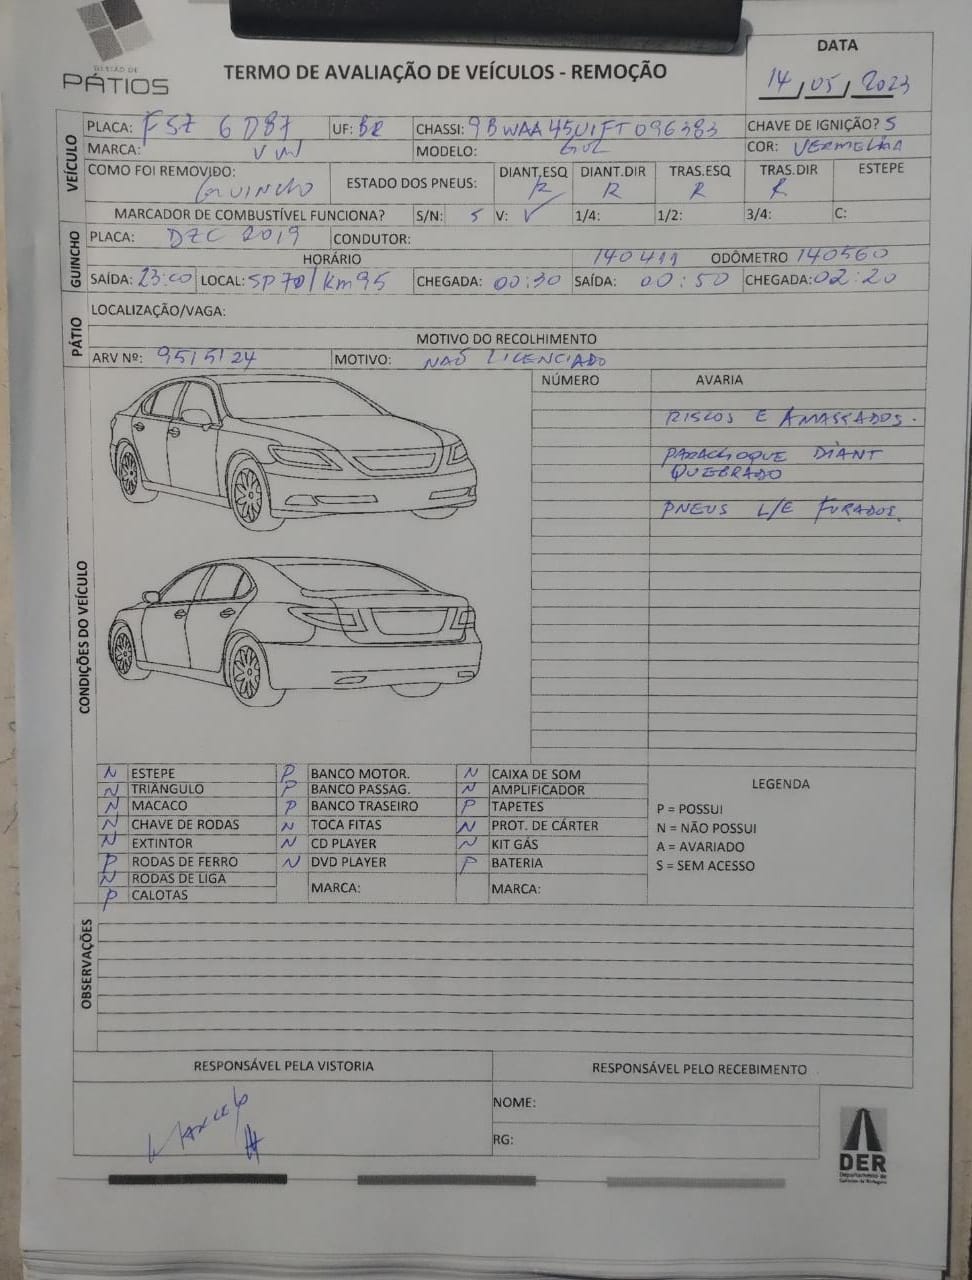 GESTÃO DE
PÁTIOS
TERMO DE AVALIAÇÃO DE VEÍCULOS - REMOÇÃO
DATA
14/05/2023
VEÍCULO
PLACA: FSZ 6D87 UF: BR CHASSI: 9BWAA45U1FT096383 CHAVE DE IGNIÇÃO? S
MARCA: VW MODELO: GOL COR: VERMELHA
COMO FOI REMOVIDO: GUINCHO ESTADO DOS PNEUS: DIANT.ESQ R DIANT.DIR R TRAS.ESQ R TRAS.DIR R ESTEPE
MARCADOR DE COMBUSTÍVEL FUNCIONA? S/N: S V: ✓ 1/4: 1/2: 3/4: C:
GUINCHO
PLACA: DZC 2019 CONDUTOR:
HORÁRIO 140411 ODÔMETRO 140560
SAÍDA: 23:00 LOCAL: SP70/Km95 CHEGADA: 00:30 SAÍDA: 00:50 CHEGADA: 02:20
PÁTIO
LOCALIZAÇÃO/VAGA:
MOTIVO DO RECOLHIMENTO
ARV Nº: 9515124 MOTIVO: NAÕ LICENCIADO
CONDIÇÕES DO VEÍCULO
NÚMERO AVARIA
RISCOS E AMASSADOS.
PARACHOQUE DIANT
QUEBRADO
PNEUS L/E FURADOS.
N ESTEPE P BANCO MOTOR. N CAIXA DE SOM
N TRIÂNGULO P BANCO PASSAG. N AMPLIFICADOR
N MACACO P BANCO TRASEIRO P TAPETES
N CHAVE DE RODAS N TOCA FITAS N PROT. DE CÁRTER
N EXTINTOR N CD PLAYER N KIT GÁS
P RODAS DE FERRO N DVD PLAYER P BATERIA
N RODAS DE LIGA MARCA: MARCA:
P CALOTAS
LEGENDA
P = POSSUI
N = NÃO POSSUI
A = AVARIADO
S = SEM ACESSO
OBSERVAÇÕES
RESPONSÁVEL PELA VISTORIA RESPONSÁVEL PELO RECEBIMENTO
Marcelo
NOME:
RG:
DER